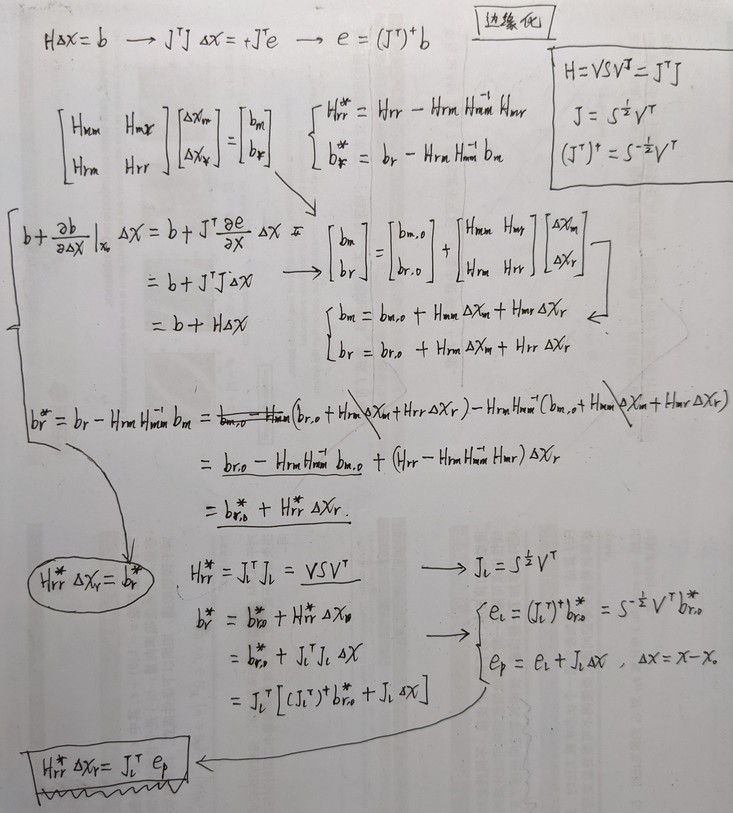 边缘化
HΔX = b → JᵀJ ΔX = +Jᵀe → e = (Jᵀ)⁺b
H = VSVᵀ = JᵀJ
J = S^{1/2} Vᵀ
(Jᵀ)⁺ = S^{-1/2} Vᵀ
[Hmm Hmr; Hrm Hrr] [ΔXm; ΔXr] = [bm; br]
{ Hrr* = Hrr - Hrm Hmm⁻¹ Hmr
br* = br - Hrm Hmm⁻¹ bm
b + ∂b/∂ΔX |x₀ ΔX = b + Jᵀ ∂e/∂X ΔX
= b + JᵀJ ΔX
= b + HΔX
→ [bm; br] = [bm,0; br,0] + [Hmm Hmr; Hrm Hrr] [ΔXm; ΔXr]
{ bm = bm,0 + Hmm ΔXm + Hmr ΔXr
br = br,0 + Hrm ΔXm + Hrr ΔXr
br* = br - Hrm Hmm⁻¹ bm = (br,0 + Hrm ΔXm + Hrr ΔXr) - Hrm Hmm⁻¹ (bm,0 + Hmm ΔXm + Hmr ΔXr)
= br,0 - Hrm Hmm⁻¹ bm,0 + (Hrr - Hrm Hmm⁻¹ Hmr) ΔXr
= br,0* + Hrr* ΔXr.
Hrr* ΔXr = br*
Hrr* = Jₗᵀ Jₗ = VSVᵀ → Jₗ = S^{1/2} Vᵀ
br* = br,0* + Hrr* ΔXr
= br,0* + Jₗᵀ Jₗ ΔX
= Jₗᵀ [(Jₗᵀ)⁺ br,0* + Jₗ ΔX]
→ { eₗ = (Jₗᵀ)⁺ br,0* = S^{-1/2} Vᵀ br,0*
ep = eₗ + Jₗ ΔX , ΔX = X - X₀
Hrr* ΔXr = Jₗᵀ ep